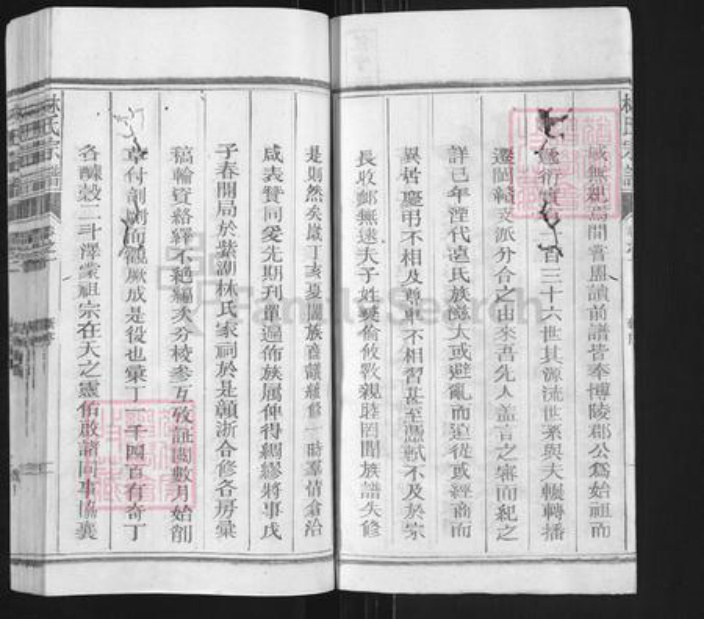 感無親焉間嘗盥讀前譜皆奉博陵郡公爲始祖而
蕃衍實百三十六世其源流世系與夫輾轉播
遷閩贛支派分合之由來吾先人蓋言之審而紀之
詳已年湮代遠氏族龐大或避亂而遠徙或經商而
異居慶弔不相及尊卑不相習甚至憑軾不及於宗
長收卹無逮夫子姓彝倫攸斁親睦罔聞族譜失修
是則然矣歲丁亥夏闔族喜議譜修一時羣情僉洽
咸表贊同爰先期刊單遍佈族屬俾得綢繆將事戊
子春開局於紫湖林氏家祠於是贛浙合修各房彙
稿輸資絡繹不絕編次分稜參互攷証閱數月始削
草付剞劂而觀厥成是役也彙丁一千四百有奇丁
各釀穀二斗澤蒙祖宗在天之靈佑啟諸同事協襄
林氏宗譜
FamilySearch